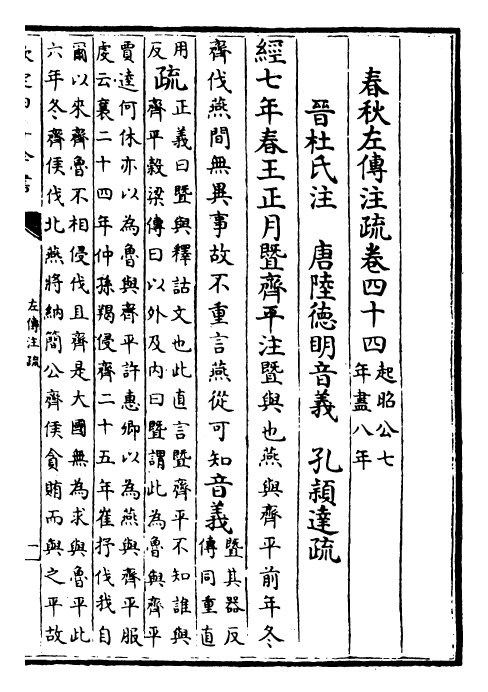 春秋左傳注疏卷四十四起昭公七
年盡八年
晉杜氏注　唐陸德明音義　孔穎達疏
經七年春王正月暨齊平注暨與也燕與齊平前年冬
齊伐燕間無異事故不重言燕從可知音義暨其器反
傳同重直
用
反
疏
正義曰暨與釋詁文也此直言暨齊平不知誰與
齊平穀梁傳曰以外及內曰暨謂此為魯與齊平
賈逵何休亦以為魯與齊平許惠卿以為燕與齊平服
虔云襄二十四年仲孫羯侵齊二十五年崔杼伐我自
爾以來齊魯不相侵伐且齊是大國無為求與魯平此
六年冬齊侯伐北燕將納簡公齊侯貪賄而與之平故
左傳注疏
一